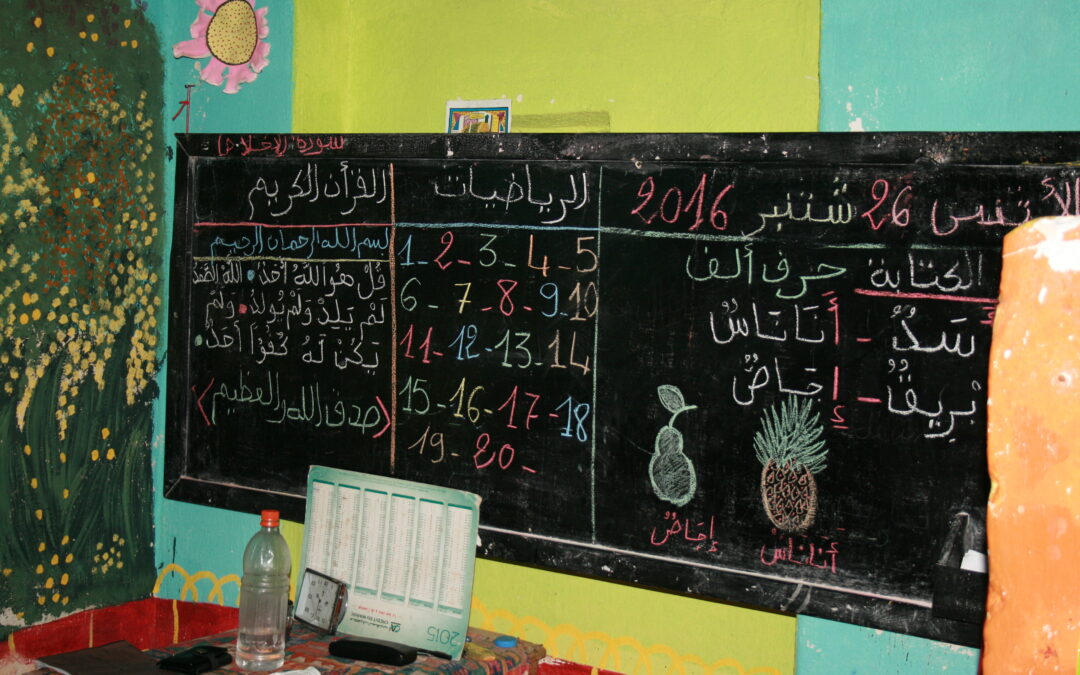 سورة الإخلاص
الأثنين 26 شتنبر 2016
الكتابة حرف ألف
سَدٌ - أَنَانَاسٌ
بْرِيقٌ - إِجَاصٌ
إِجَاصٌ
أَنَانَاسٌ
الرياضيات
1 - 2 - 3 - 4 - 5
6 - 7 - 8 - 9 - 10
11 - 12 - 13 - 14
15 - 16 - 17 - 18
19 - 20 -
القرأن الكريم
بسم الله الرحمان الرحيم
قُلْ هُوَ اللَّهُ أَحَدٌ • اللَّهُ الصَّمَدُ
لَمْ يَلِدْ وَلَمْ يُولَدْ • وَلَمْ
يَكُنْ لَهُ كُفُؤًا أَحَدٌ •
<صدق الله العظيم>
CREDIT DU MAROC
2015